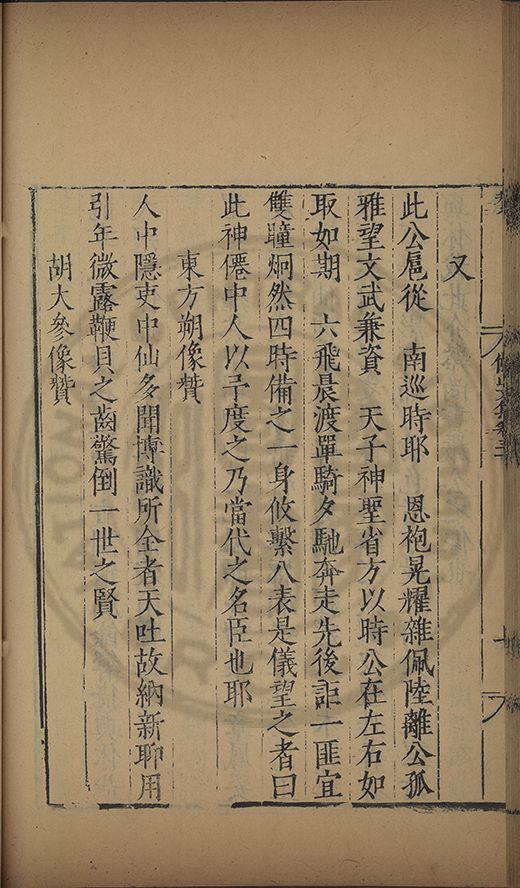 又
此公扈從　南巡時耶　恩袍晃耀雜佩陸離公孤
雅望文武兼資　天子神聖省方以時公在左右如
取如期　六飛晨渡單騎夕馳奔走先後詎一匪宜
雙瞳炯然四時備之一身攸繫八表是儀望之者曰
此神僊中人以予度之乃當代之名臣也耶
東方朔像贊
人中隱吏中仙多聞博識所全者天吐故納新聊用
引年微露鞭貝之齒驚倒一世之賢
胡大參像贊